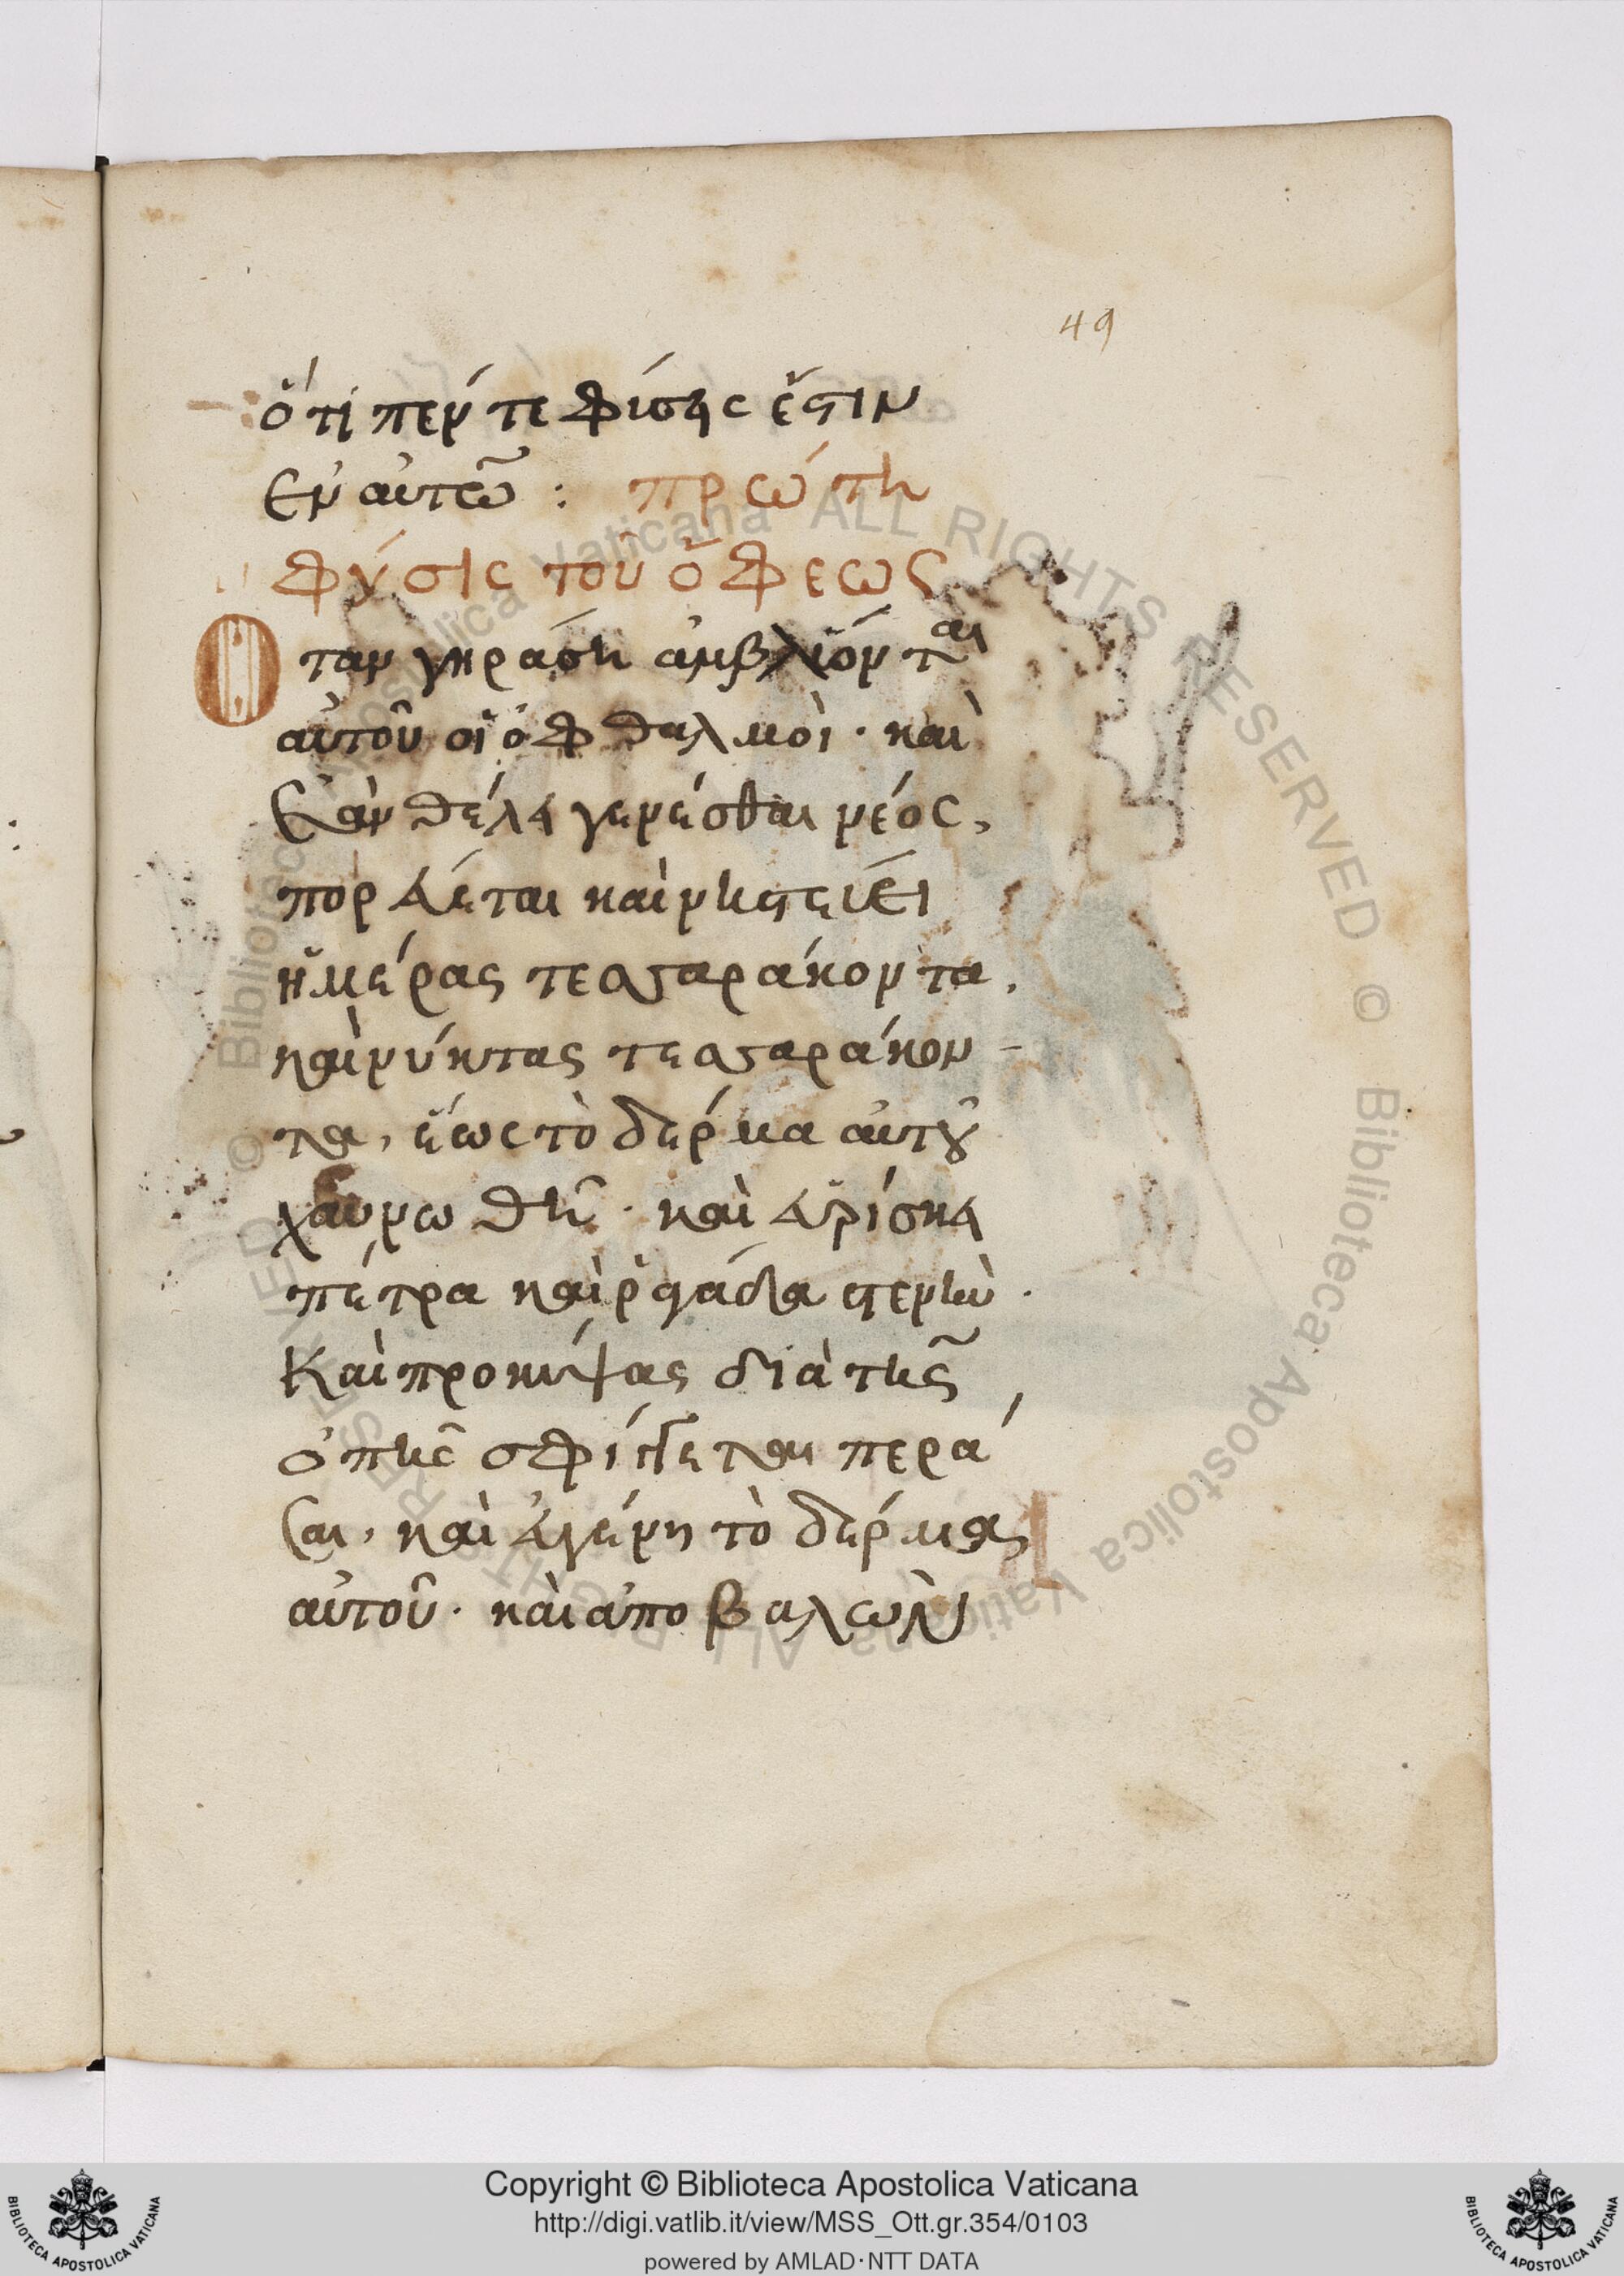 49
ὅτι περ τε φίσης ἔστιν
ἐν αὐτῶ : πρώτη
φύσις τοῦ ὄφεως
Ὅταν γηράση ἀμβλιόνται
αὐτοῦ οἱ ὀφθαλμοὶ · καὶ
ἐὰν θέλει γενέσθαι νέος,
πορεύεται καὶ νηστεύει
ἡμέρας τεσσαράκοντα,
καὶ νύκτας τεσσαράκον-
τα, ἕως τὸ δέρμα αὐτοῦ
χαυνωθῆ · καὶ εὑρίσκει
πέτρα καὶ ραγάδα στενὴν ·
Καὶ προκύψας διὰ τῆς
ὀπῆς σφίγγεται περά
σαι, καὶ τὸ δέρμας
αὐτοῦ · καὶ ἀποβαλὼν
© Biblioteca Apostolica Vaticana ALL RIGHTS RESERVED © Biblioteca Apostolica Vaticana ALL RIGHTS RESERVED
Copyright © Biblioteca Apostolica Vaticana
http://digi.vatlib.it/view/MSS_Ott.gr.354/0103
powered by AMLAD·NTT DATA
BIBLIOTECA APOSTOLICA VATICANA
BIBLIOTECA APOSTOLICA VATICANA